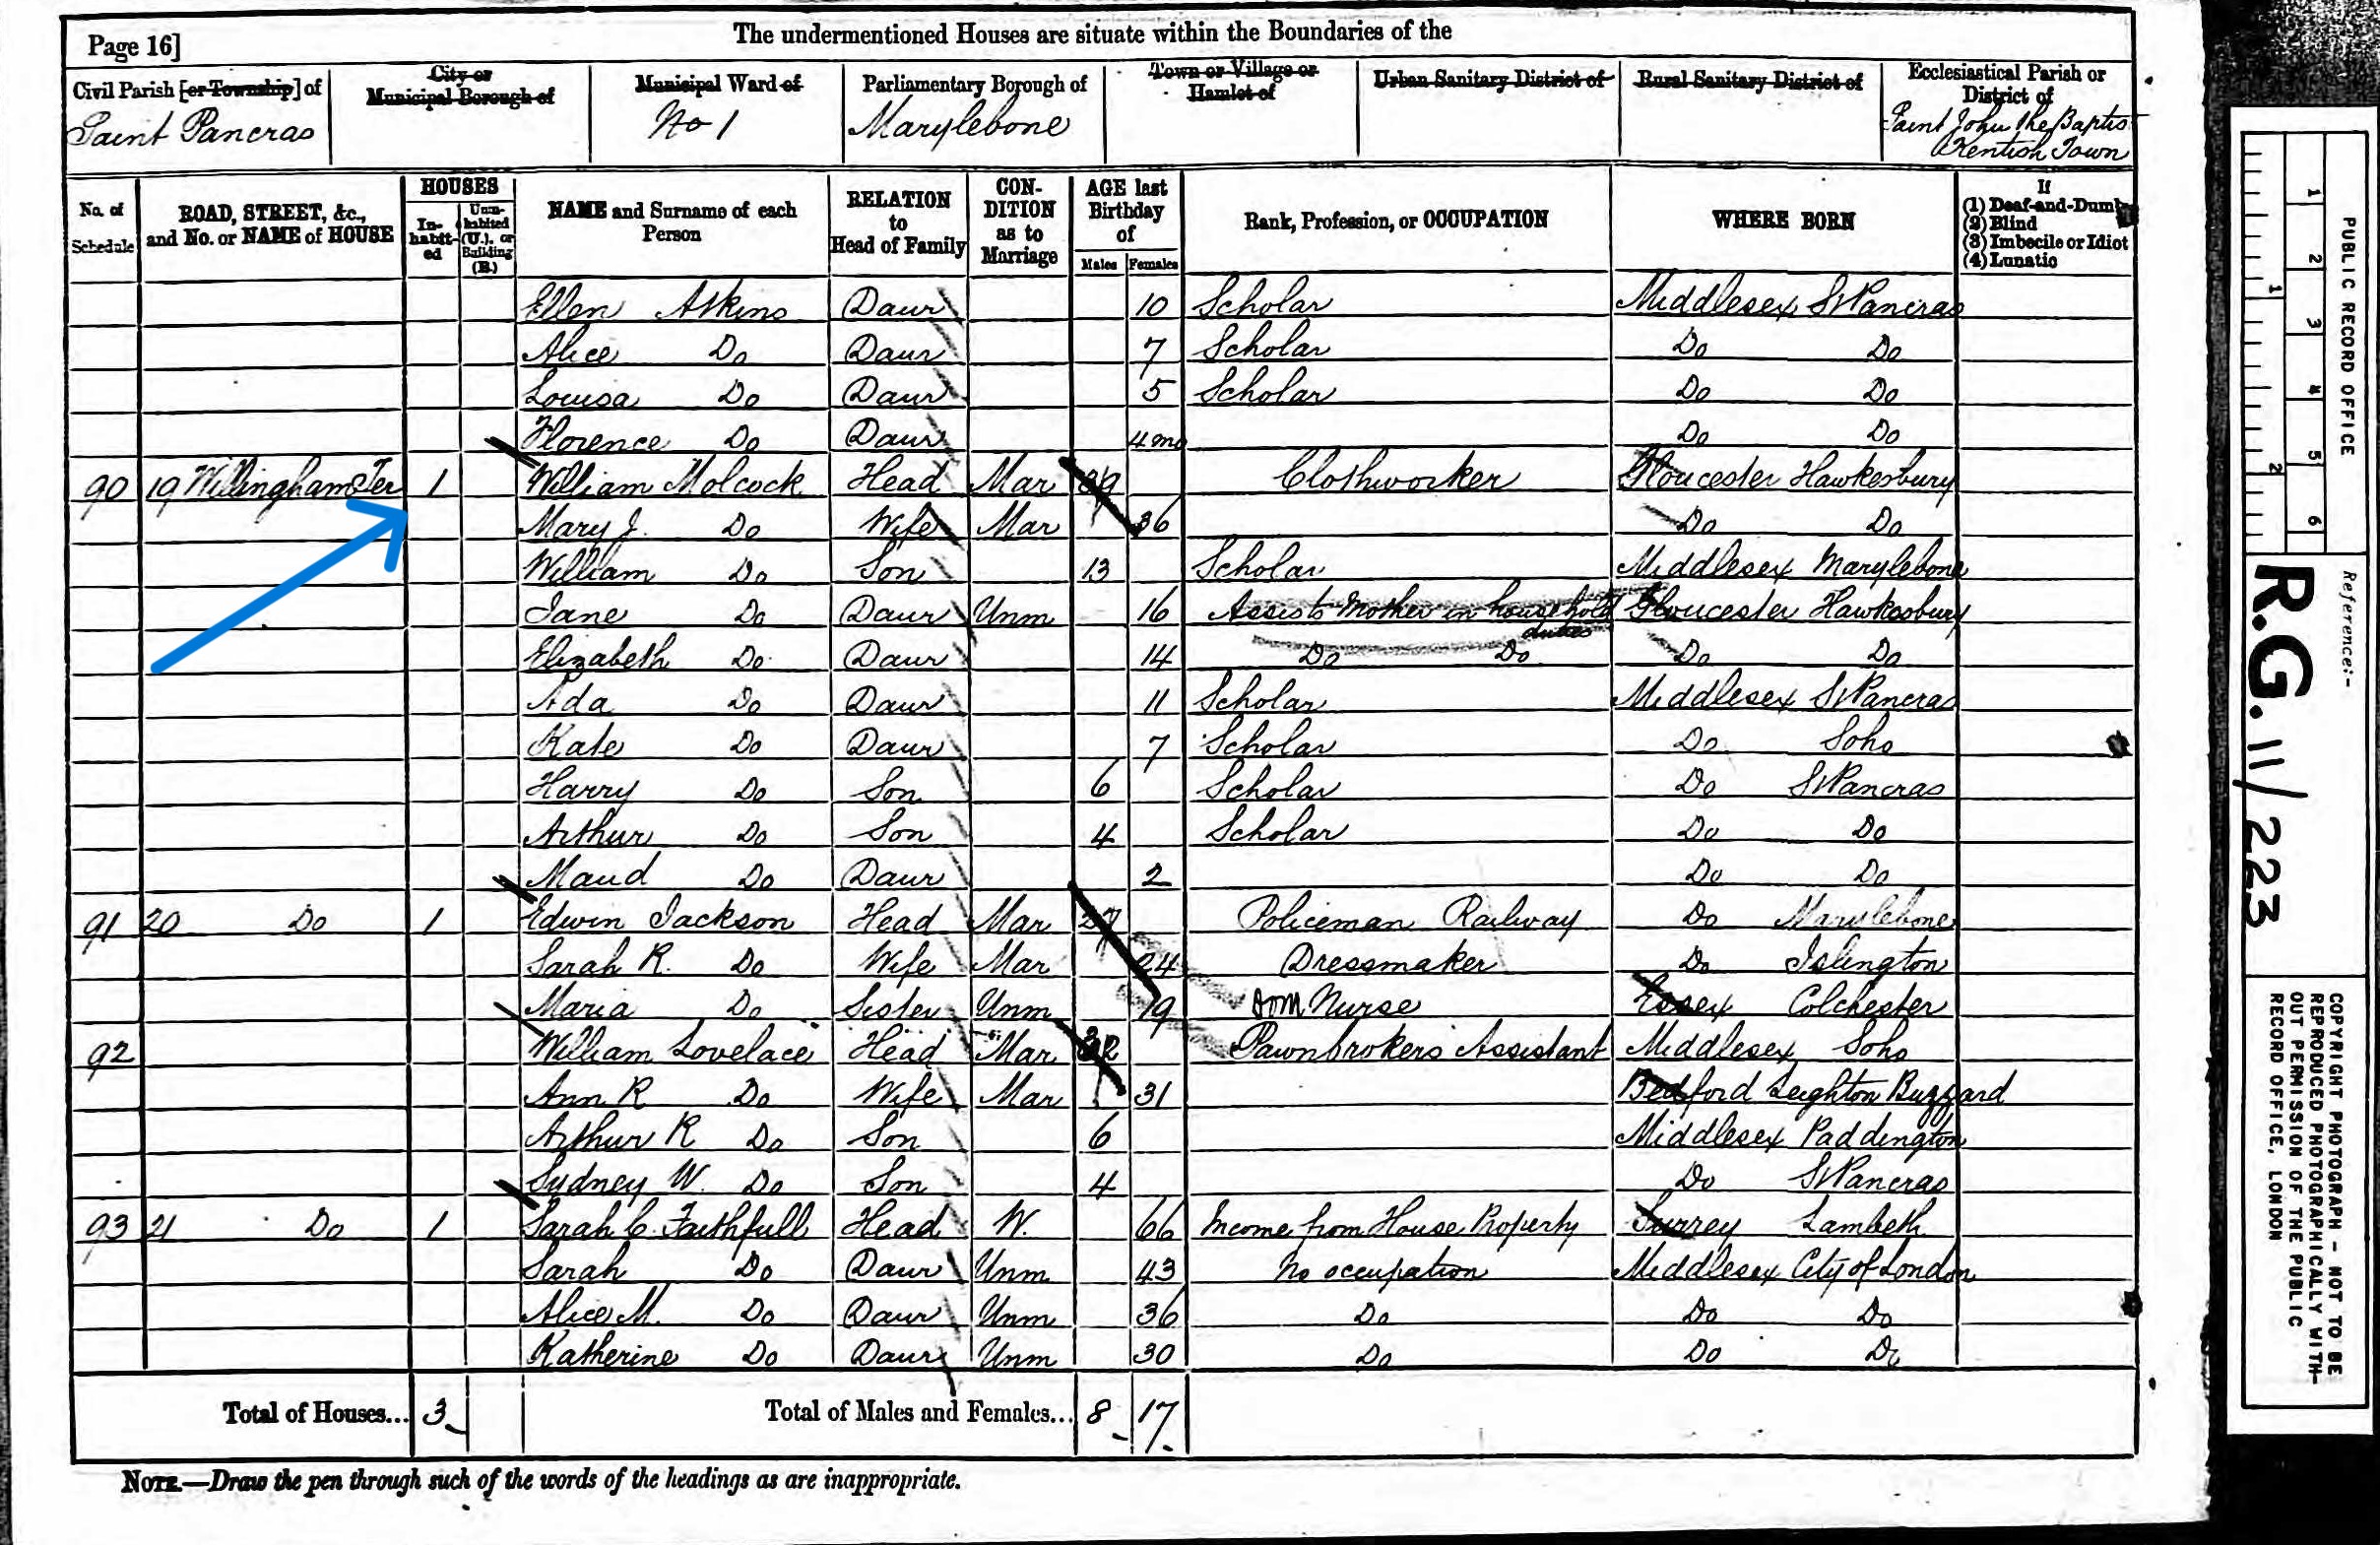 The undermentioned Houses are situate within the Boundaries of the
Page 16]
Civil Parish [or Township] of
Saint Pancras
City or
Municipal Borough of
Municipal Ward of
No 1
Parliamentary Borough of
Marylebone
Town or Village or
Hamlet of
Urban Sanitary District of
Rural Sanitary District of
Ecclesiastical Parish or
District of
Saint John the Baptis
Kentish Town
No. of
Schedule
ROAD, STREET, &c.,
and No. or NAME of HOUSE
HOUSES
In-
habit-
ed
Unin-
habited
(U.), or
Building
(B.)
NAME and Surname of each
Person
RELATION
to
Head of Family
CON-
DITION
as to
Marriage
AGE last
Birthday
of
Males Females
Rank, Profession, or OCCUPATION
WHERE BORN
If
(1) Deaf-and-Dumb
(2) Blind
(3) Imbecile or Idiot
(4) Lunatic
Ellen Atkins Daur 10 Scholar Middlesex St Pancras
Alice Do Daur 7 Scholar Do Do
Louisa Do Daur 5 Scholar Do Do
Florence Do Daur 4 mo Do Do
90 19 Willingham Ter 1 William Molcock Head Mar 39 Clothworker Gloucester Hawkesbury
Mary J. Do Wife Mar 36 Do Do
William Do Son 13 Scholar Middlesex Marylebone
Jane Do Daur Unm 16 Assists Mother in household duties Gloucester Hawkesbury
Elizabeth Do Daur 14 Do Do Do Do
Ada Do Daur 11 Scholar Middlesex St Pancras
Kate Do Daur 7 Scholar Do Soho
Harry Do Son 6 Scholar Do St Pancras
Arthur Do Son 4 Scholar Do Do
Maud Do Daur 2 Do Do
91 20 Do 1 Edwin Jackson Head Mar 27 Policeman Railway Do Marylebone
Sarah R. Do Wife Mar 24 Dressmaker Do Islington
Maria Do Sister Unm 19 Dom Nurse Essex Colchester
92 William Lovelace Head Mar 32 Pawnbrokers Assistant Middlesex Soho
Ann R Do Wife Mar 31 Bedford Leighton Buzzard
Arthur R Do Son 6 Middlesex Paddington
Sydney W. Do Son 4 Do St Pancras
93 21 Do 1 Sarah C. Faithfull Head W. 66 Income from House Property Surrey Lambeth
Sarah Do Daur Unm 43 No occupation Middlesex City of London
Alice M. Do Daur Unm 36 Do Do Do
Katherine Do Daur Unm 30 Do Do Do
Total of Houses... 3 Total of Males and Females... 8 17
NOTE.—Draw the pen through such of the words of the headings as are inappropriate.
1 2 3 4 5 6
1 2
PUBLIC RECORD OFFICE
Reference:-
R.G. 11/223
COPYRIGHT PHOTOGRAPH - NOT TO BE
REPRODUCED PHOTOGRAPHICALLY WITH-
OUT PERMISSION OF THE PUBLIC
RECORD OFFICE, LONDON